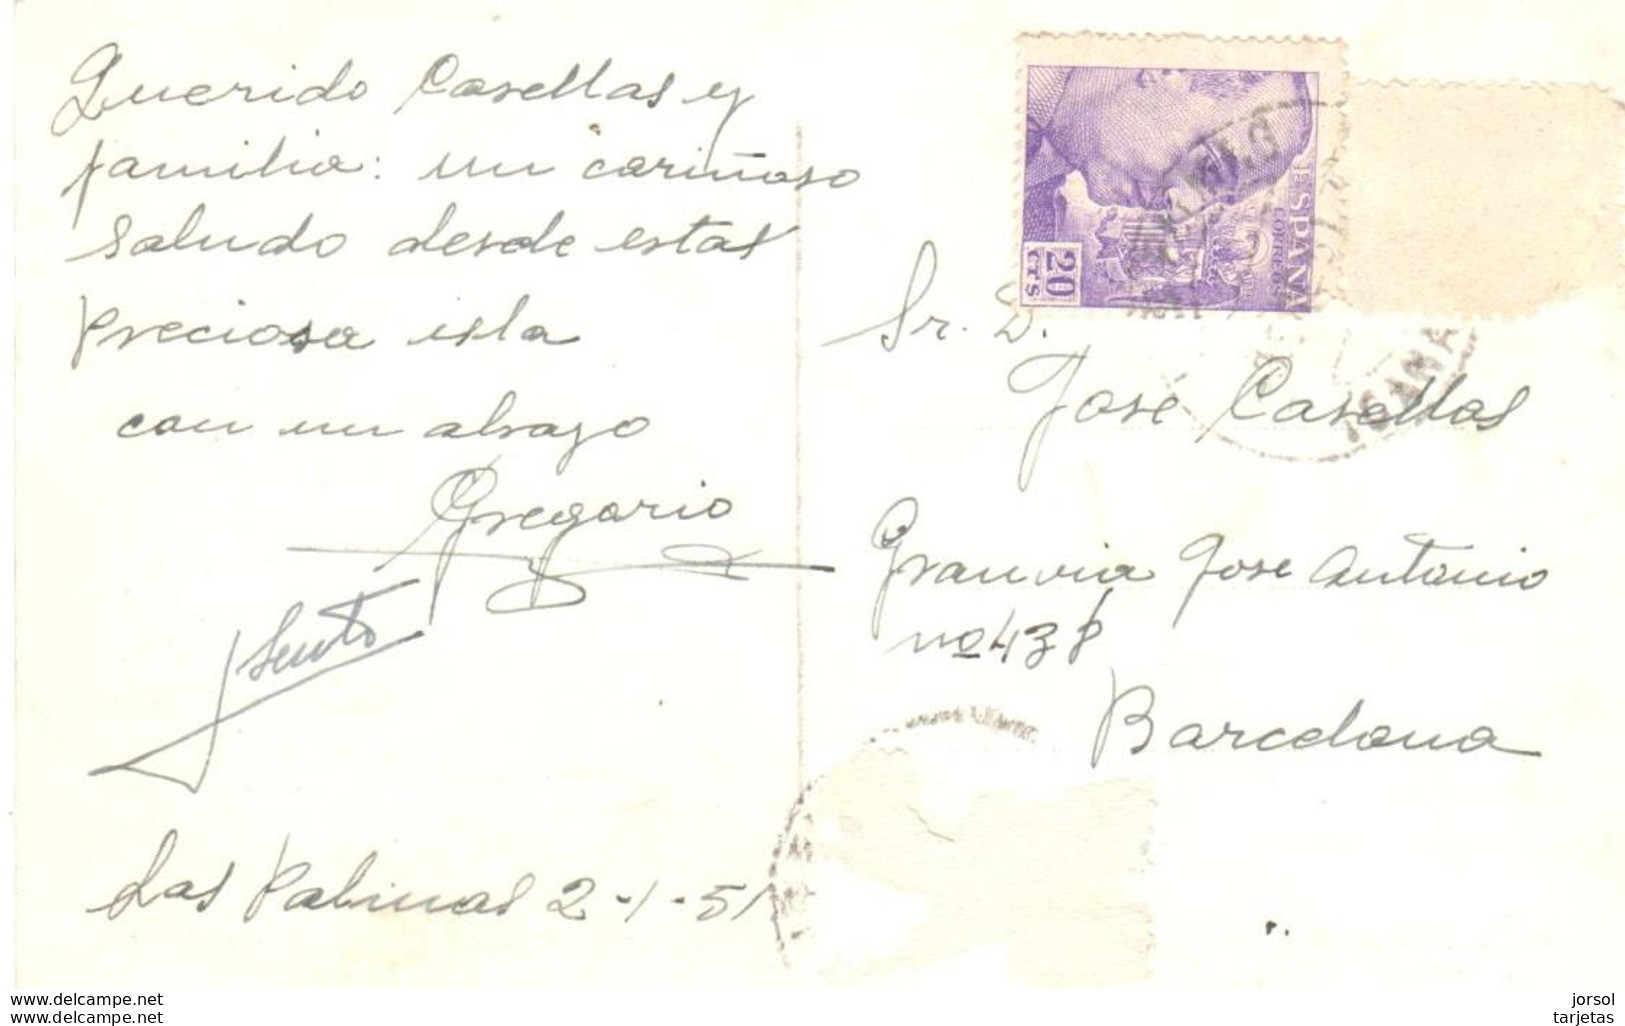 Querido Casellas y
familia: un cariñoso
saludo desde estas
preciosa isla
con un abrazo
Gregorio
Las Palmas 2-1-51
ESPAÑA
CORREOS
20
CTS
Sr. D.
José Casellas
Granvia Jose Antonio
nº 438
Barcelona
www.delcampe.com
www.delcampe.net
jorsol
tarjetas